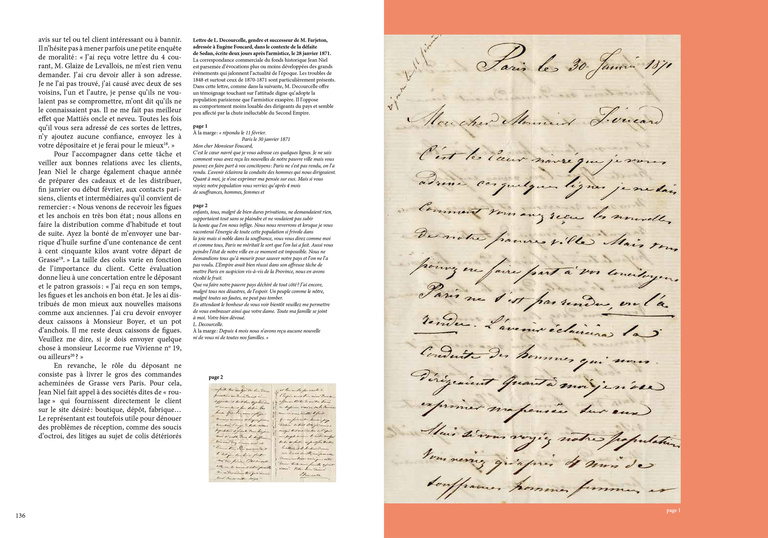 avis sur tel ou tel client intéressant ou à bannir.
Il n'hésite pas à mener parfois une petite enquête
de moralité : « J'ai reçu votre lettre du 4 cou-
rant, M. Glaize de Levallois, ne m'est rien venu
demander. J'ai cru devoir aller à son adresse.
Je ne l'ai pas trouvé, j'ai causé avec deux de ses
voisins, l'un et l'autre, je pense qu'ils ne vou-
laient pas se compromettre, m'ont dit qu'ils ne
le connaissaient pas. Il ne me fait pas meilleur
effet que Mattiés oncle et neveu. Toutes les fois
qu'il vous sera adressé de ces sortes de lettres,
n'y ajoutez aucune confiance, envoyez les à
votre dépositaire et je ferai pour le mieux¹⁸. »
Pour l'accompagner dans cette tâche et
veiller aux bonnes relations avec les clients,
Jean Niel le charge également chaque année
de préparer des cadeaux et de les distribuer,
fin janvier ou début février, aux contacts pari-
siens, clients et intermédiaires qu'il convient de
remercier : « Nous venons de recevoir les figues
et les anchois en très bon état ; nous allons en
faire la distribution comme d'habitude et tout
de suite. Ayez la bonté de m'envoyer une bar-
rique d'huile surfine d'une contenance de cent
à cent cinquante kilos avant votre départ de
Grasse¹⁹. » La taille des colis varie en fonction
de l'importance du client. Cette évaluation
donne lieu à une concertation entre le déposant
et le patron grassois : « J'ai reçu en son temps,
les figues et les anchois en bon état. Je les ai dis-
tribués de mon mieux aux nouvelles maisons
comme aux anciennes. J'ai cru devoir envoyer
deux caissons à Monsieur Boyer, et un pot
d'anchois. Il me reste deux caissons de figues.
Veuillez me dire, si je dois envoyer quelque
chose à monsieur Lecorme rue Vivienne n° 19,
ou ailleurs²⁰ ? »
En revanche, le rôle du déposant ne
consiste pas à livrer le gros des commandes
acheminées de Grasse vers Paris. Pour cela,
Jean Niel fait appel à des sociétés dites de « rou-
lage » qui fournissent directement le client
sur le site désiré : boutique, dépôt, fabrique…
Le représentant est toutefois utile pour dénouer
des problèmes de réception, comme des soucis
d'octroi, des litiges au sujet de colis détériorés
136
Lettre de L. Decourcelle, gendre et successeur de M. Furjeton,
adressée à Eugène Foucard, dans le contexte de la défaite
de Sedan, écrite deux jours après l'armistice, le 28 janvier 1871.
La correspondance commerciale du fonds historique Jean Niel
est parsemée d'évocations plus ou moins développées des grands
événements qui jalonnent l'actualité de l'époque. Les troubles de
1848 et surtout ceux de 1870-1871 sont particulièrement présents.
Dans cette lettre, comme dans la suivante, M. Decourcelle offre
un témoignage touchant sur l'attitude digne qu'adopte la
population parisienne que l'armistice exaspère. Il l'oppose
au comportement moins louable des dirigeants du pays et semble
peu affecté par la chute inéluctable du Second Empire.
page 1
À la marge : « répondu le 11 février.
Paris le 30 janvier 1871
Mon cher Monsieur Foucard,
C'est le cœur navré que je vous adresse ces quelques lignes. Je ne sais
comment vous avez reçu les nouvelles de notre pauvre ville mais vous
pouvez en faire part à vos concitoyens : Paris ne s'est pas rendu, on l'a
rendu. L'avenir éclairera la conduite des hommes qui nous dirigeaient.
Quant à moi, je n'ose exprimer ma pensée sur eux. Mais si vous
voyiez notre population vous verriez qu'après 4 mois
de souffrances, hommes, femmes et
page 2
enfants, tous, malgré de bien dures privations, ne demandaient rien,
supportaient tout sans se plaindre et ne voulaient pas subir
la honte que l'on nous inflige. Nous nous reverrons et lorsque je vous
raconterai l'énergie de toute cette population si frivole dans
la joie mais si noble dans la souffrance, vous vous direz comme moi
et comme tous, Paris ne méritait le sort que l'on lui a fait. Aussi vous
peindre l'état de notre ville en ce moment est impossible. Nous ne
demandions tous qu'à mourir pour sauver notre pays et l'on ne l'a
pas voulu. L'Empire avait bien réussi dans son affreuse tâche de
mettre Paris en suspicion vis-à-vis de la Province, nous en avons
récolté le fruit.
Que va faire notre pauvre pays déchiré de tout côté ? J'ai encore,
malgré tous nos désastres, de l'espoir. Un peuple comme le nôtre,
malgré toutes ses fautes, ne peut pas tomber.
En attendant le bonheur de vous voir bientôt veuillez me permettre
de vous embrasser ainsi que votre dame. Toute ma famille se joint
à moi. Votre bien dévoué.
L. Decourcelle.
À la marge : Depuis 6 mois nous n'avons reçu aucune nouvelle
ni de vous ni de toutes nos familles. »
page 2
Paris le 30 Janvier 1871
Mon cher Monsieur Foucard
C'est le cœur navré que je vous
adresse ces quelques lignes je ne sais
comment vous avez reçu les nouvelles
de notre pauvre ville Mais vous
pouvez en faire part à vos concitoyens
Paris ne s'est pas rendu, on l'a
rendu. L'avenir éclairera la
conduite des hommes qui nous
dirigeaient Quant à moi je n'ose
exprimer ma pensée sur eux
Mais si vous voyiez notre population
vous verriez qu'après 4 mois de
souffrances hommes femmes et
page 1